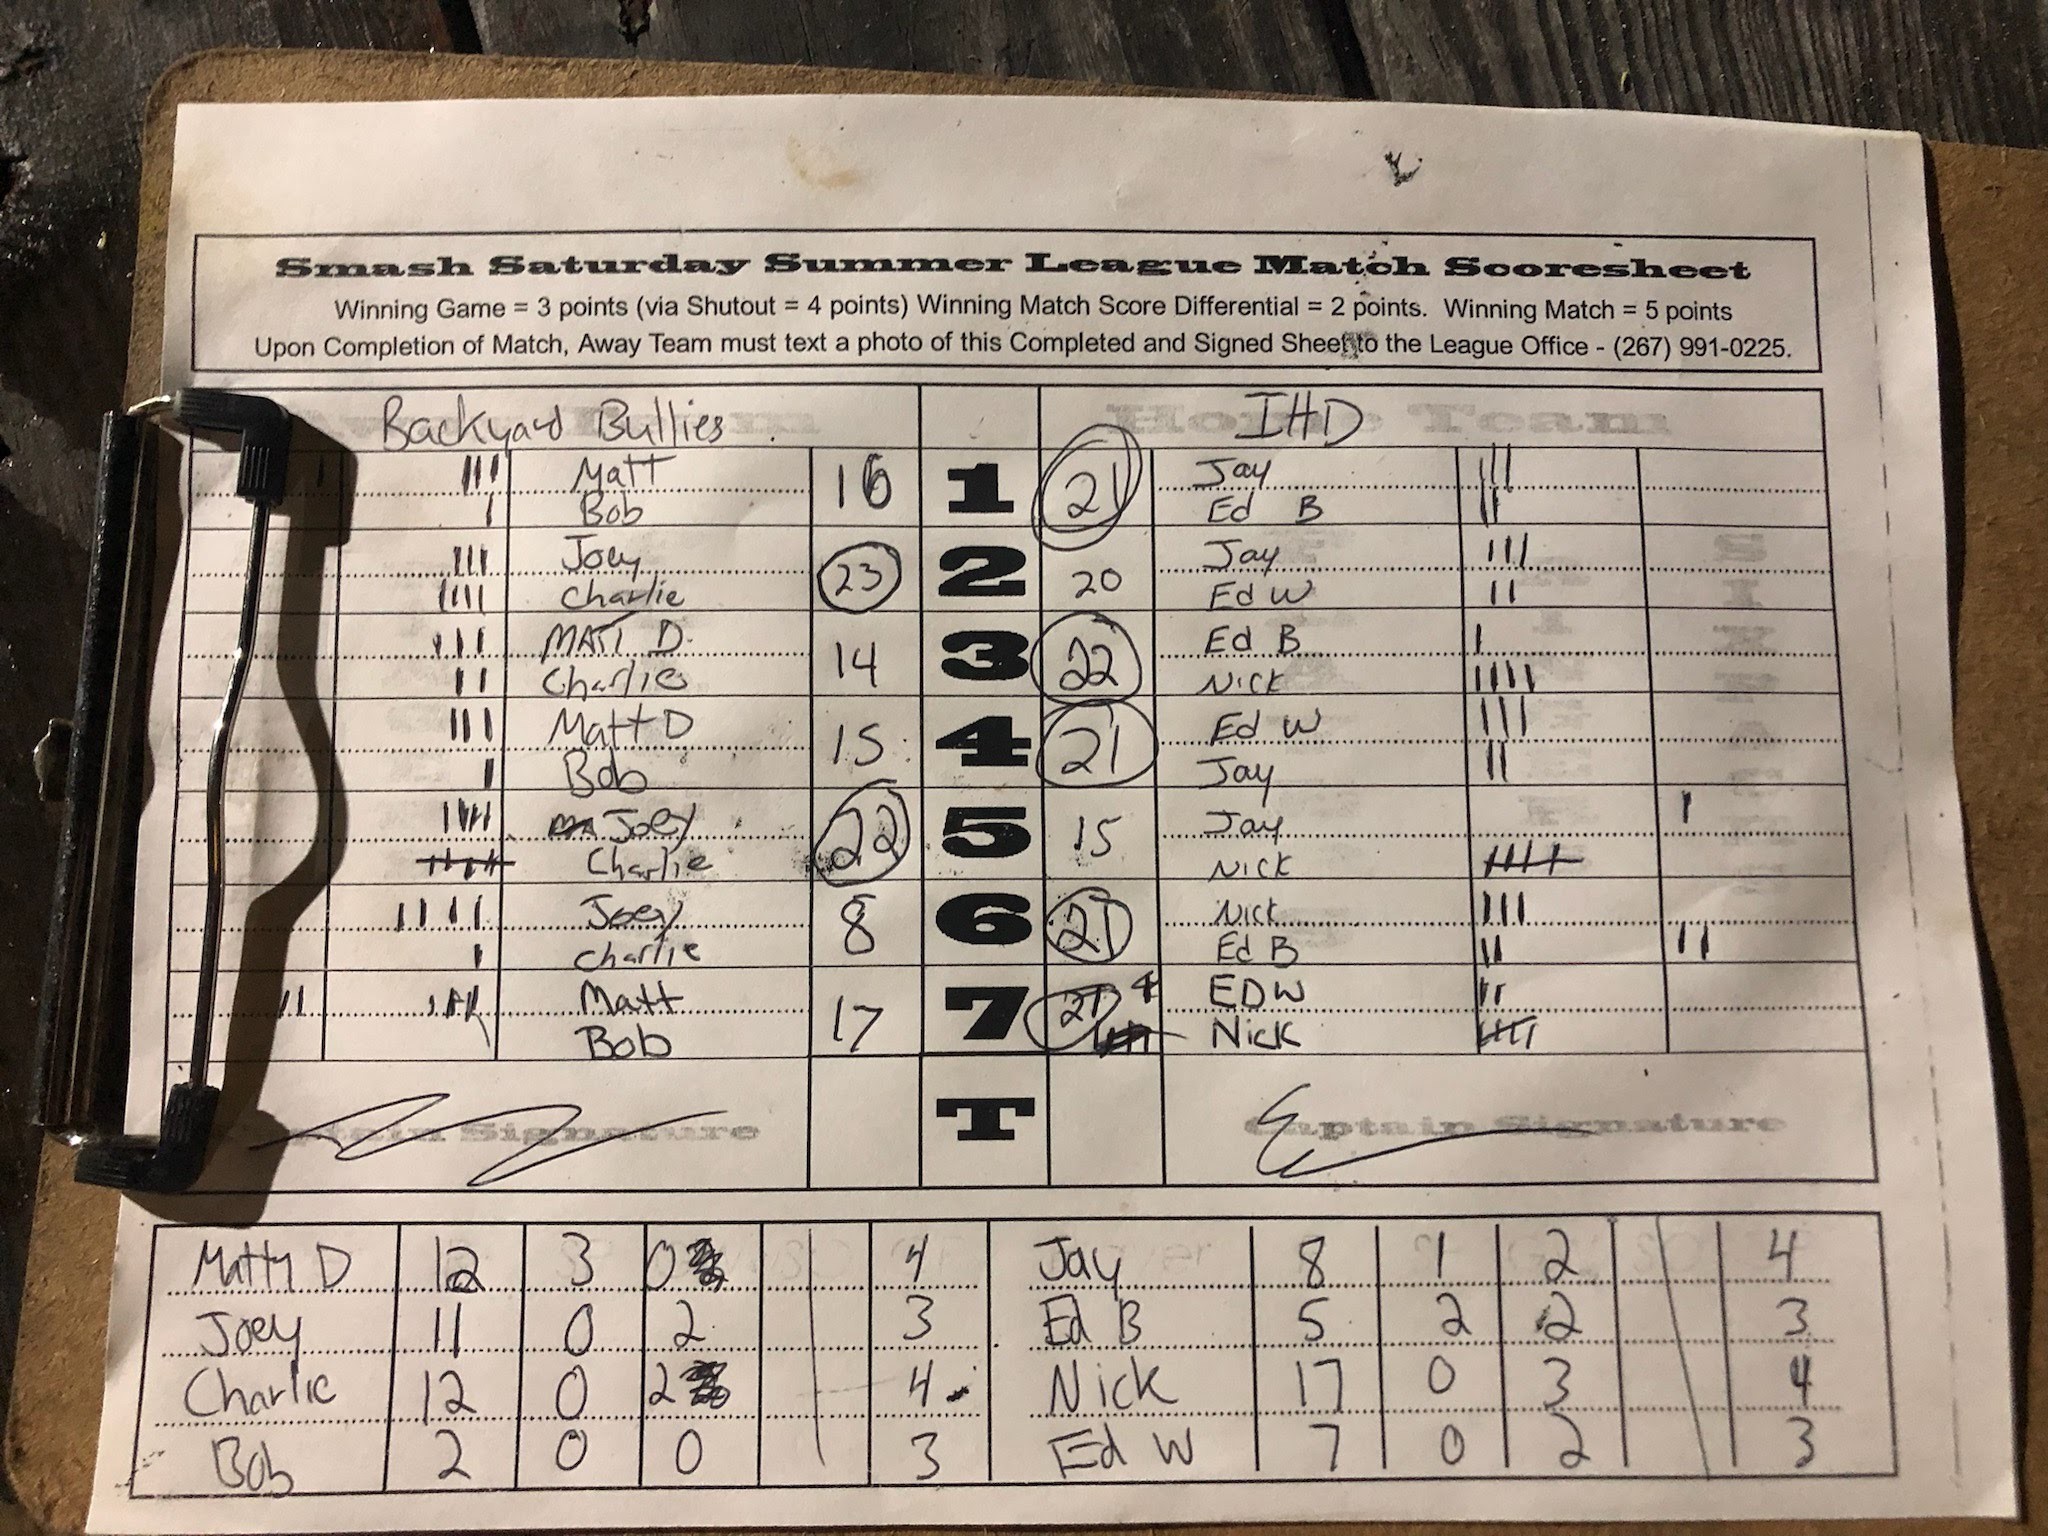 Smash Saturday Summer League Match Scoresheet
Winning Game = 3 points (via Shutout = 4 points) Winning Match Score Differential = 2 points. Winning Match = 5 points
Upon Completion of Match, Away Team must text a photo of this Completed and Signed Sheet to the League Office - (267) 991-0225.
Backyard Bullies Home Team IHD
Matt 16 1 21 Jay
Bob Ed B
Joey 23 2 20 Jay
Charlie Ed W
MATT D. 14 3 22 Ed B
Charlie Nick
Matt D 15 4 21 Ed W
Bob Jay
Joey 22 5 15 Jay
Charlie Nick
Joey 8 6 21 Nick
Charlie Ed B
Matt 17 7 21 4 ED W
Bob Nick
Captain Signature T Captain Signature
Matty D 12 3 0 4 Jay 8 1 2 4
Joey 11 0 2 3 Ed B 5 2 2 3
Charlie 12 0 2 4 Nick 17 0 3 4
Bob 2 0 0 3 Ed W 7 0 2 3